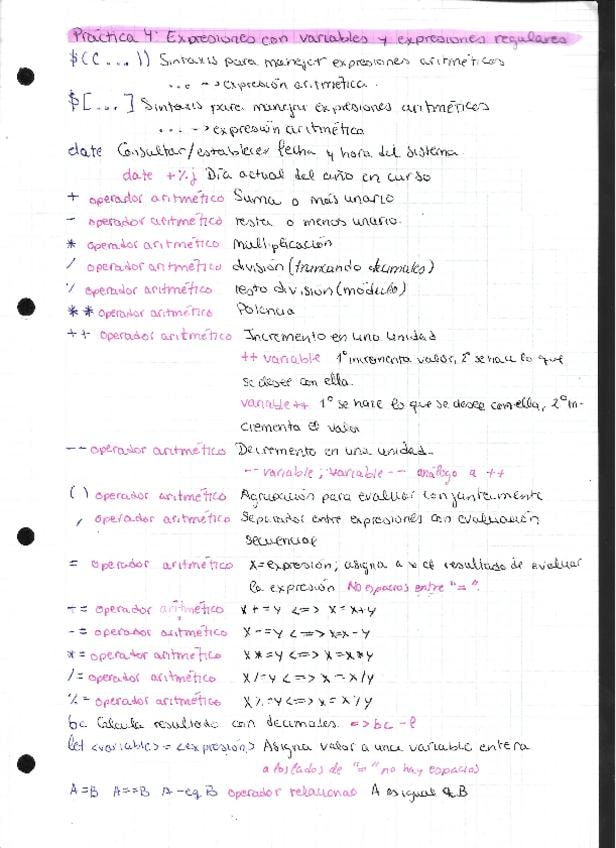 Práctica 4: Expresiones con variables y expresiones regulares
$((...)) Sintaxis para manejar expresiones aritméticas
... -> expresión aritmética.
$[...] Sintaxis para manejar expresiones aritméticas
... -> expresión aritmética
date Consultar/establecer fecha y hora del sistema.
date +%j Día actual del año en curso
+ operador aritmético Suma o más unario
- operador aritmético resta o menos unario.
* operador aritmético multiplicación
/ operador aritmético división (truncando decimales)
% operador aritmético resto división (módulo)
** operador aritmético Potencia
++ operador aritmético Incremento en una unidad
++ variable 1º incrementa valor, 2º se hace lo que
se desee con ella.
variable++ 1º se hace lo que se desee con ella, 2º in-
crementa el valor
-- operador aritmético Decremento en una unidad.
-- variable; variable -- análogo a ++
( ) operador aritmético Agrupación para evaluar conjuntamente
, operador aritmético Separador entre expresiones con evaluación
secuencial
= operador aritmético x=expresión; asigna a x el resultado de evaluar
la expresión No espacios entre "=".
+= operador aritmético x+=y <=> x=x+y
-= operador aritmético x-=y <=> x=x-y
*= operador aritmético x*=y <=> x=x*y
/= operador aritmético x/=y <=> x=x/y
%= operador aritmético x%=y <=> x=x%y
bc Calcula resultado con decimales. => bc -l
let <variable> = <expresión> Asigna valor a una variable entera
a los lados de "=" no hay espacios
A=B A==B A -eq B operador relacional A es igual a B